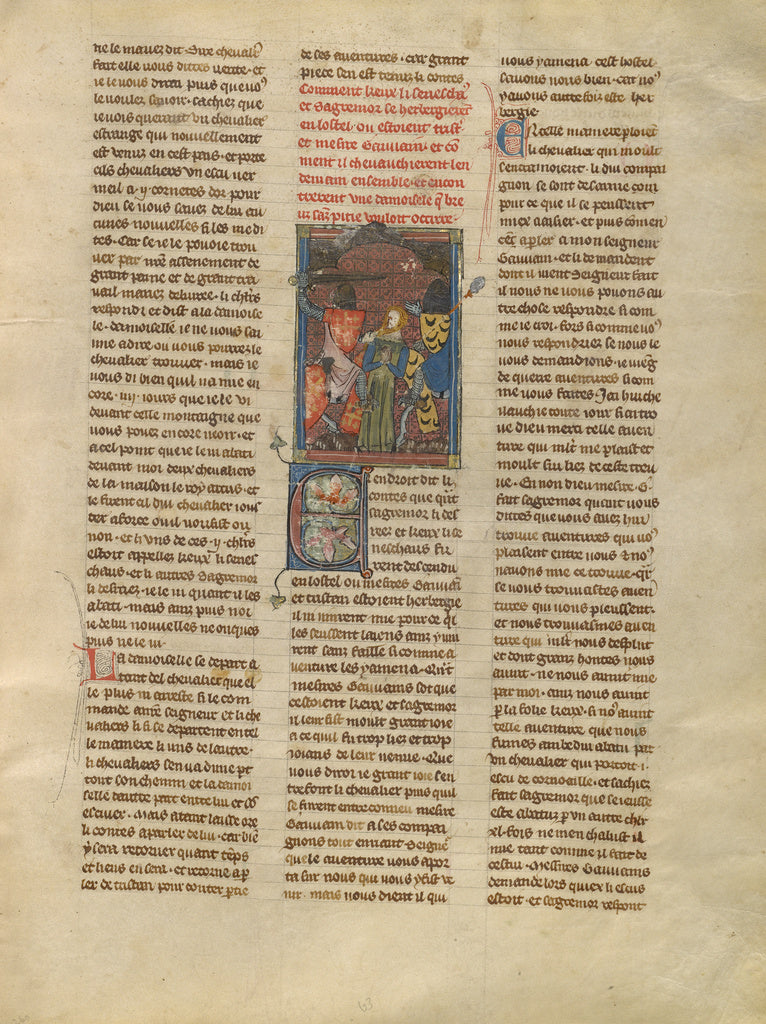 ne le mauez dit. Sire cheualier
fait elle uous dittes uerite. et
ie le uous dirai puis que uous
le uoulez sauoir. sachez que
ie uois querant un cheualier
estrange qui nouuellement
est uenuz en cest pais. et porte
cils cheualiers un escu uer
meil a .ij. cornetes dor pour
dieu se uous sauez de lui au
cunes nouuelles si les me di
tes. Car se ie le pouoie trou
uer par uostre assenement de
grant paine et de grant tra
uail mauriez deliuree. li cheualiers
respondi et dist a la damoise
le. damoiselle ie ne uous sai
mie a dire ou uous pourrez le
cheualier trouuer. mais ie
uous di bien quil na mie en
core .iiij. iours que ie le ui
deuant celle montaigne que
uous pouez encore ueoir. et
a cel point que ie le ui abati
deuant moi deux cheualiers
de la maison le roy artus. et
le firent cil dui cheualier ious
ter a force ou il uousist ou
non. et li uns de ces .ij. cheualiers
estoit appellez keux li senes
chaus. et li autres Sagremor
li desreez. ie le ui quant il les
abati. mais ainz puis noi
ie de lui nouuelles ne onques
puis ne le ui.
La damoiselle se depart a
tant del cheualier que el
le plus ni arreste si le com
mande a nostre seigneur et li che
ualiers li si se departent en tel
le maniere li uns de lautre.
li cheualiers sen ua dune part
tout son chemin et la damoi
selle dautre part entre lui et ses
escuier. Mais atant laisse ore
li contes a parler de lui. car bien
y sera retorner quant temps
et liens en sera. et retorne a par
ler de tristan pour conter partie
de ses auentures. car grant
piece sen est tenuz li contes.
Comment keux li seneschaus
et Sagremor se herbergierent
en lostel. ou estoient tristan
et mesire Gauuain. et com
ment il cheuauchierent len
demain ensemble. et encon
trerent une damoisele que bre
us sanz pitie uouloit occirre.
En endroit dit li
contes que quant
sagremor li des
reez et keux li se
neschaus fu
rent descendu
en lostel ou mesires Gauuains
et tristan estoient herbergie
il ni uinrent mie pour ce quil
les seussent laiens ainz y uin
rent sanz faille si comme a
uenture les y amena. Quant
mesires Gauuains sot que
cestoient keux et sagremor
il leur fist moult grant ioie
a ce quil fu trop liez et trop
ioians de leur uenue. Que
uous diroi ie grant ioie sen
trefont li cheualier puis quil
se furent entreconneu. mesire
Gauuain dit a ses compai
gnons tout enriant Seigneurs
quele auenture uous apor
ta sur nous qui uous y fist ue
nir. mais uous dient il qui
uous y amena cest hostel
sauons nous bien. car nous
y auons autre fois este her
bergie.
En celle maniere ploient
li cheualier qui moult
sentramoient. li dui compai
gnon se sont desarme tout
pour ce que il se peussent
miex aaisier. et puis comen
cent a parler a mon seigneur
Gauuain. et li demandent
dont il uient Seigneur fait
il nous ne uous pouons au
tre chose respondre si com
me ie croi. fors si comme uous
nous respondriez se nous le
uous demandions. ie uieng
de querre auentures si com
me uous faites. Jai hui che
uauchie toute iour si ai trou
ue dieu merci telle auen
ture qui moult me plaist et
moult sui liez de ceste trou
ue. En non dieu mesire G.
fait sagremor quant uous
dittes que uous auez hui
trouue auentures qui uous
plaisent entre uous et nous
nauons mie ce trouue. quar
se uous trouuastes auen
tures qui uous pleussent.
et nous trouuasmes auen
ture qui moult nous desplut
et dont granz hontes nous
auint. ne nous auint mie
par moi. ainz nous auint
par la folie keux. si nous auint
telle auenture que nous
fumes ambedui abatu par
un cheualier qui portoit .i.
escu de cornoaille. et sachiez
fait sagremor que se ieusse
este abatuz par un autre cheualier
el. fois ne men chalust il
mie tant comme il fait de
cestui. Mesires Gauuains
demande lors quiex li escus
estoit. et sagremor respont
63